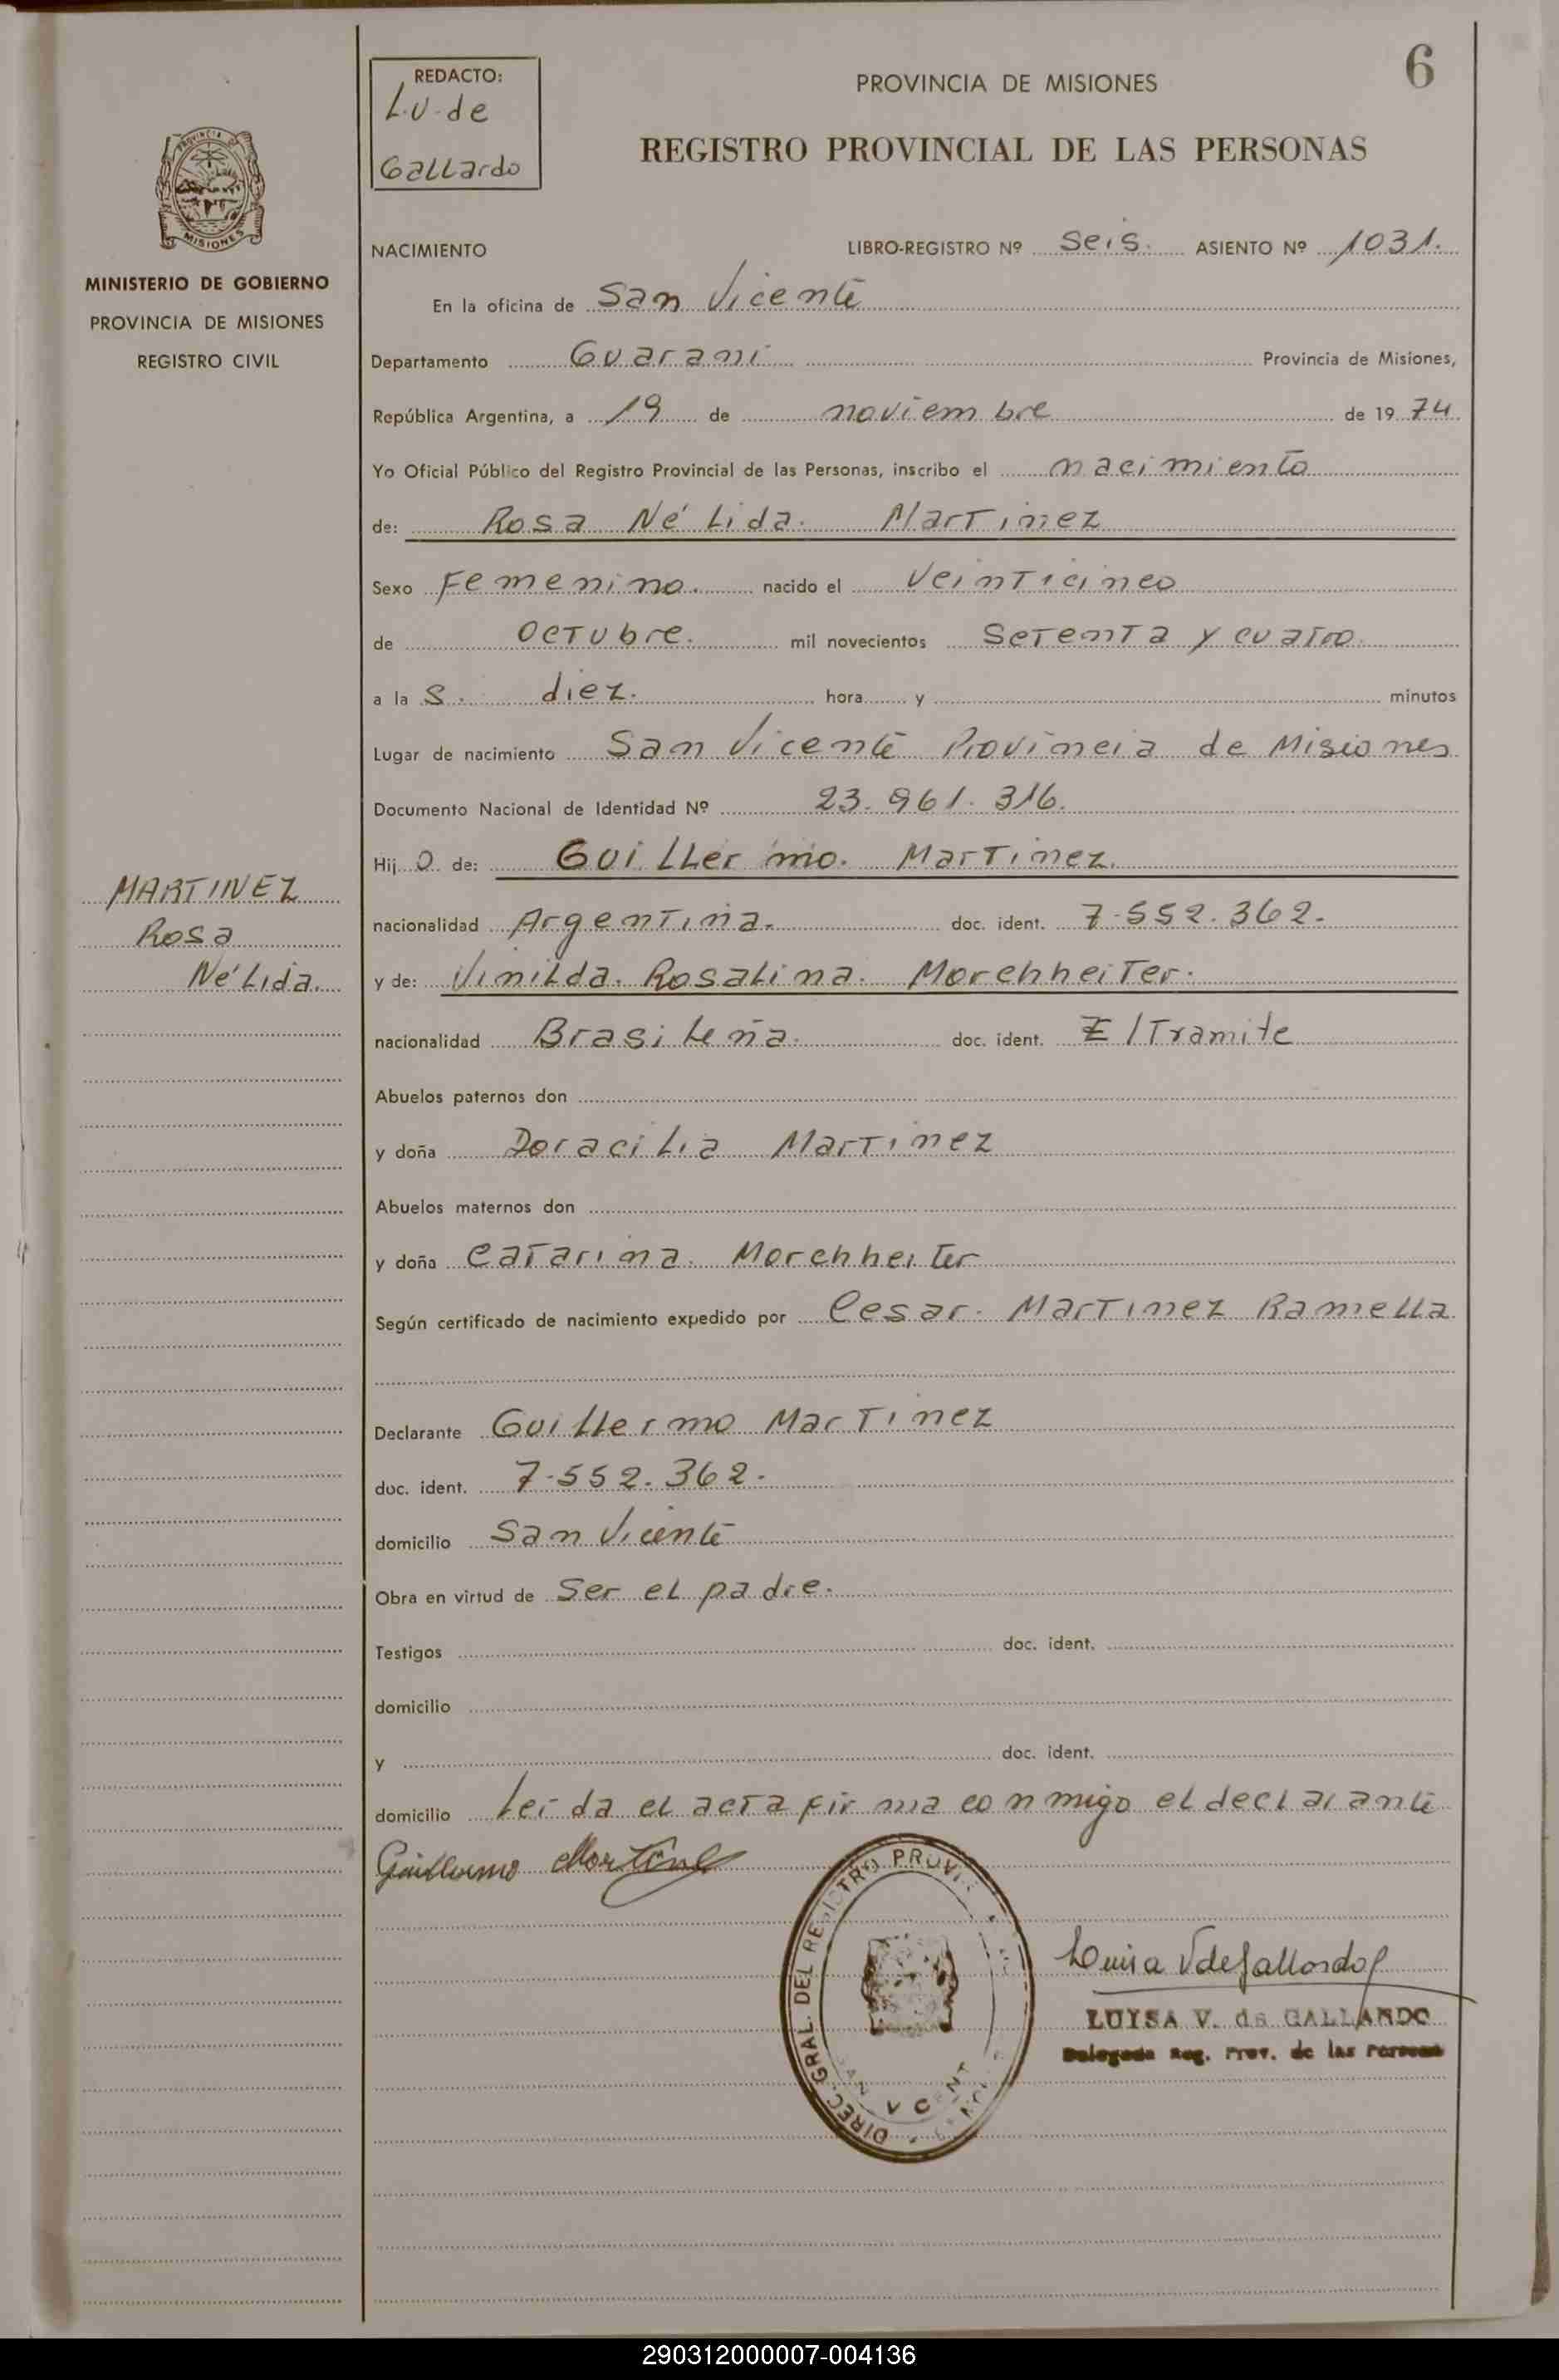 6
REDACTO:
L.V. de
Gallardo
PROVINCIA DE MISIONES
REGISTRO PROVINCIAL DE LAS PERSONAS
PROVINCIA
MISIONES
MINISTERIO DE GOBIERNO
PROVINCIA DE MISIONES
REGISTRO CIVIL
NACIMIENTO LIBRO-REGISTRO Nº Seis. ASIENTO Nº 1031.
En la oficina de San Vicente
Departamento Guarani Provincia de Misiones,
República Argentina, a 19 de noviembre de 1974
Yo Oficial Público del Registro Provincial de las Personas, inscribo el nacimiento
de: Rosa Nélida. Martinez
Sexo Femenino. nacido el Veinticinco
de Octubre. mil novecientos Setenta y cuatro.
a la s. diez. hora y minutos
Lugar de nacimiento San Vicente Provincia de Misiones
Documento Nacional de Identidad Nº 23.961.316.
Hij o de: Guillermo. Martinez.
nacionalidad Argentina. doc. ident. 7.552.362.
y de: Vinilda. Rosalina. Morchheiter.
nacionalidad Brasileña. doc. ident. E/Tramite
Abuelos paternos don
y doña Doracilia Martinez
Abuelos maternos don
y doña Catarina. Morchheiter
Según certificado de nacimiento expedido por Cesar. Martinez Ramella
Declarante Guillermo Martinez
doc. ident. 7.552.362.
domicilio San Vicente
Obra en virtud de Ser el padre.
Testigos doc. ident.
domicilio
y doc. ident.
domicilio Leida el acta firma conmigo el declarante
Guillermo Martinez
MARTINEZ
Rosa
Nélida.
DIREC. GRAL. DEL REGISTRO PROVI
SAN VICENTE
Luisa V de Gallardo
LUYSA V. de GALLARDO
Delegada Reg. Prov. de las Personas
290312000007-004136